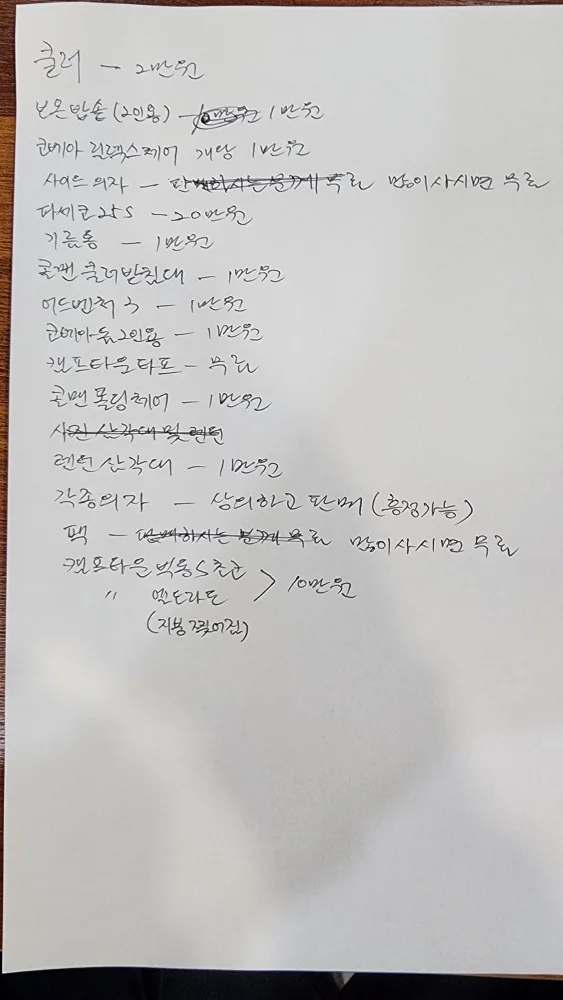 쿨러 - 2만원
보온밥솥(2인용) - 10만원 1만원
코베아 릴렉스체어 개당 1만원
사이드 의자 - 판매하시는분께 무료 많이사시면 무료
파세코 25S - 20만원
기름통 - 1만원
콜맨 쿨러받침대 - 1만원
어드벤처 3 - 1만원
코베아 돔 2인용 - 1만원
캠프타운 타프 - 무료
콜맨 폴딩체어 - 1만원
사진 삼각대 및 랜턴
렌턴 삼각대 - 1만원
각종의자 - 상의하고 판매(흥정가능)
팩 - 판매하시는 분께 무료 많이사시면 무료
캠프타운 빅돔S 초코 > 10만원
" 엘도라도
(지붕 찢어짐)